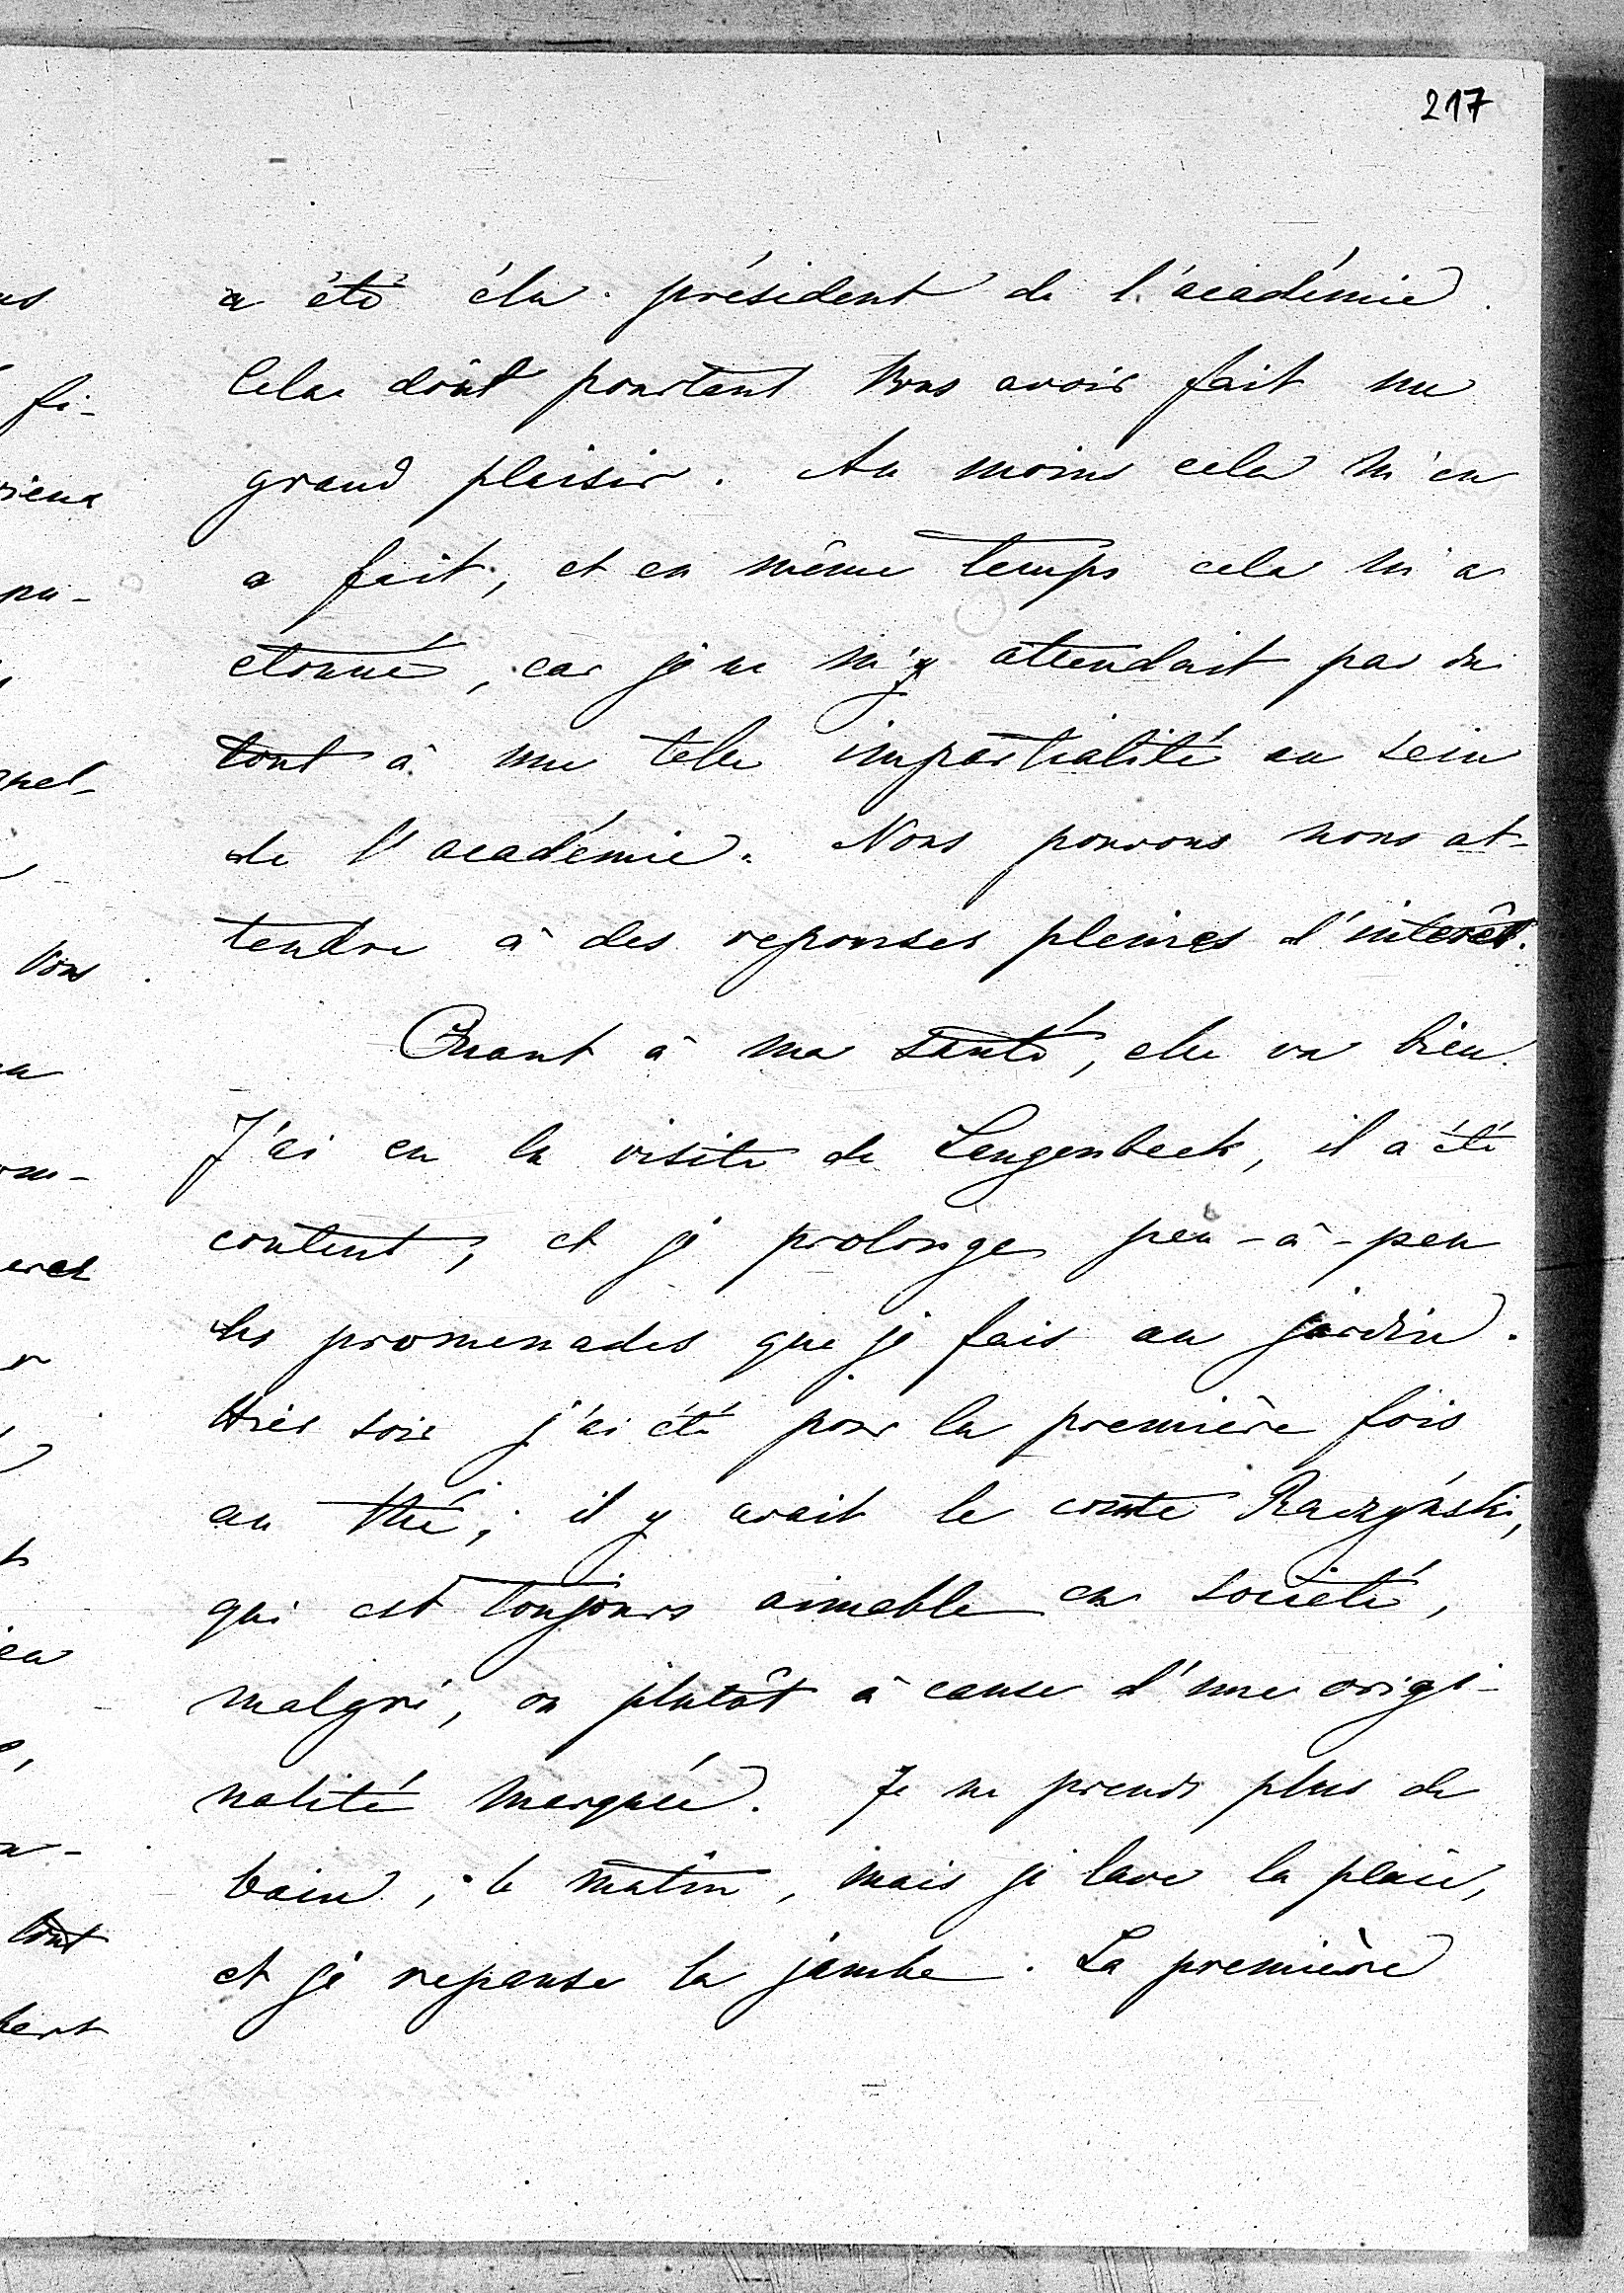 217
a été élu président de l'académie.
Cela doit pourtant Vous avoir fait un
grand plaisir. Au moins cela m'en
a fait, et en même temps cela m'a
etonné, car je ne m'y attendait pas du
tout à une telle impartialité au sein
de l'académie. Nous pouvons nous at-
tendre à des reponses pleines d'interêt.
Quant à ma santé, elle va bien.
J'ai eu la visite de Langenbeck, il a été
content, et je prolonge peu-à-peu
les promenades que je fais au jardin.
Hier soir j'ai été pour la première fois
au thé; il y avait le comte Raczyński,
qui est toujours aimable en société,
malgré, ou plutôt à cause d'une origi-
nalité marquée. Je ne prends plus de
bain, le matin, mais je lave la plaie,
et je repanse la jambe. La première